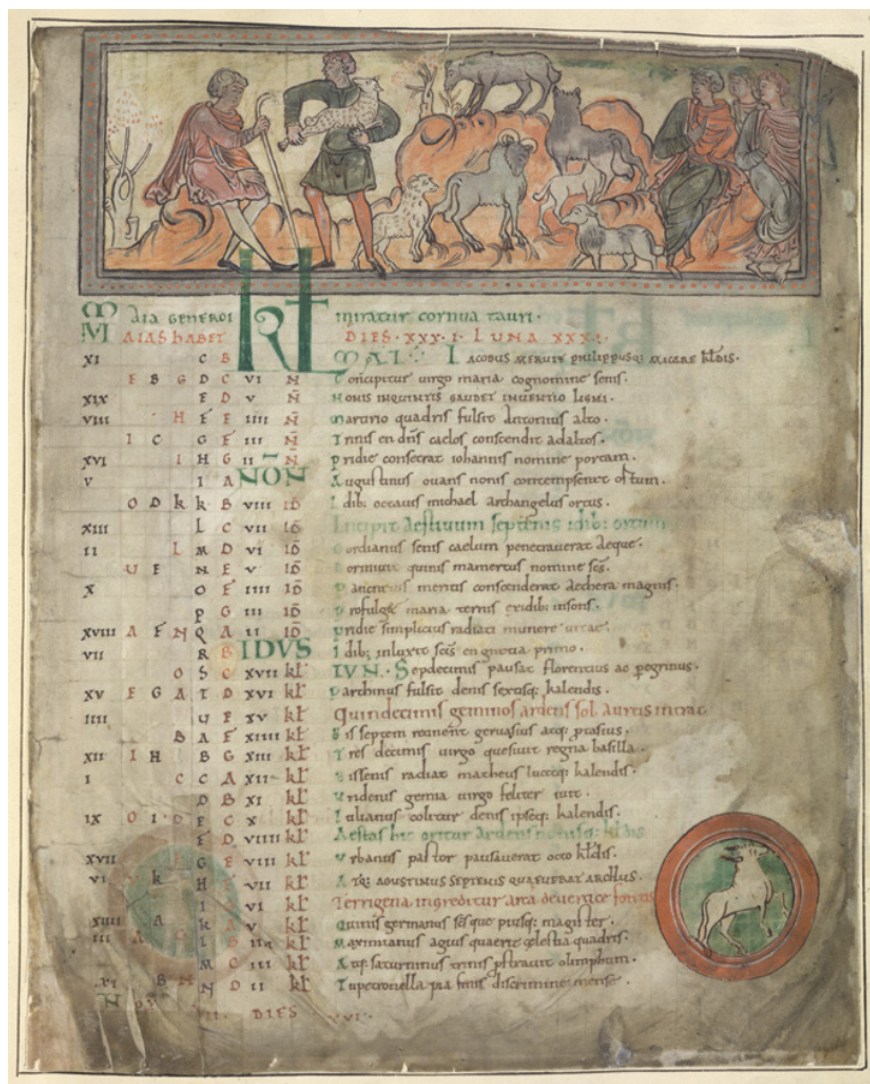 MAIA GENEROI KL miratur cornua tauri.
MAIAS HABET DIES.XXX.I. LUNA XXX.
XI C B MAI. IACOBUS MERUIT PHILIPPUSQ; MICARE KLDIS.
F B G D C VI N Concipitur virgo maria cognomine senis.
XIX E D V N NONIS INQUINTIS GAUDET INUENTIO LIGNI.
VIII H F E IIII N Martirio quadris fulsit antonius alto.
I C G F III N Trinis en dns caelos conscendit ad altos.
XVI I H G II N Pridie consecrat iohannis nomine portam.
V I A NON Augustinus ovans nonis contempserat
O D K K B VIII ID Idib; octauis michael archangelus ortus.
XIII L C VII ID Incipit aestivum septenis idib; ortum
II L M D VI ID Gordianus senis caelum penetrauerat aeque.
U F N E V ID quinis mamertus nomine scs.
X O F IIII ID Pancratius meritis conscenderat aethera magnis.
P G III ID maria ternis exidib; insons.
XVIII A F N Q A II ID Pridie simplicius radiati munere vitae.
VII R B IDUS Idib; inluxit scs primo.
O S C XVII KL IUN. Septdecimis pausat florentius ac peregrinus.
XV F G A T D XVI KL Parthinus fulsit denis sextisq; kalendis.
IIII U E XV KL Quindecimis geminos ardens sol aureus intrat
B A F XIIII KL Bis septem retinent gervasius atq; ptasius.
XII I H B G XIII KL Tres decimis virgo quesivit regna basilla.
I C C A XII KL Bissenis radiat matheus luceq; kalendis.
D B XI KL Undenis gemia virgo feliter ivit.
IX O I D E C X KL Iulianus colitur denis ipseq; kalendis.
F D VIIII KL Aestas hic oritur ardens nonisq; kldis
XVII G E VIII KL Urbanus pastor pausaverat octo kldis.
VI K H VII KL ATQ; AGUSTINUS SEPTENIS
I VI KL Terrigena ingreditur arca devertice fontis
XIIII A K V KL Quinis germanus scsque piusq; magister.
III L KL Maximianus agius quaerit celestia quadris.
M C III KL Atq; saturninus trinis olimphum.
XI B N D II KL Tu petronella pia finis discrimine mense.
NOX DIES